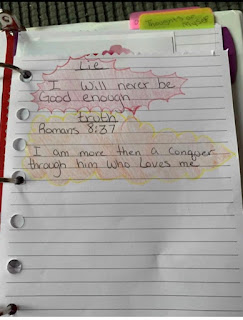 Lie
I Will never be
Good enough
truth
Romans 8:37
I am more then a Conquer
through him who loves me